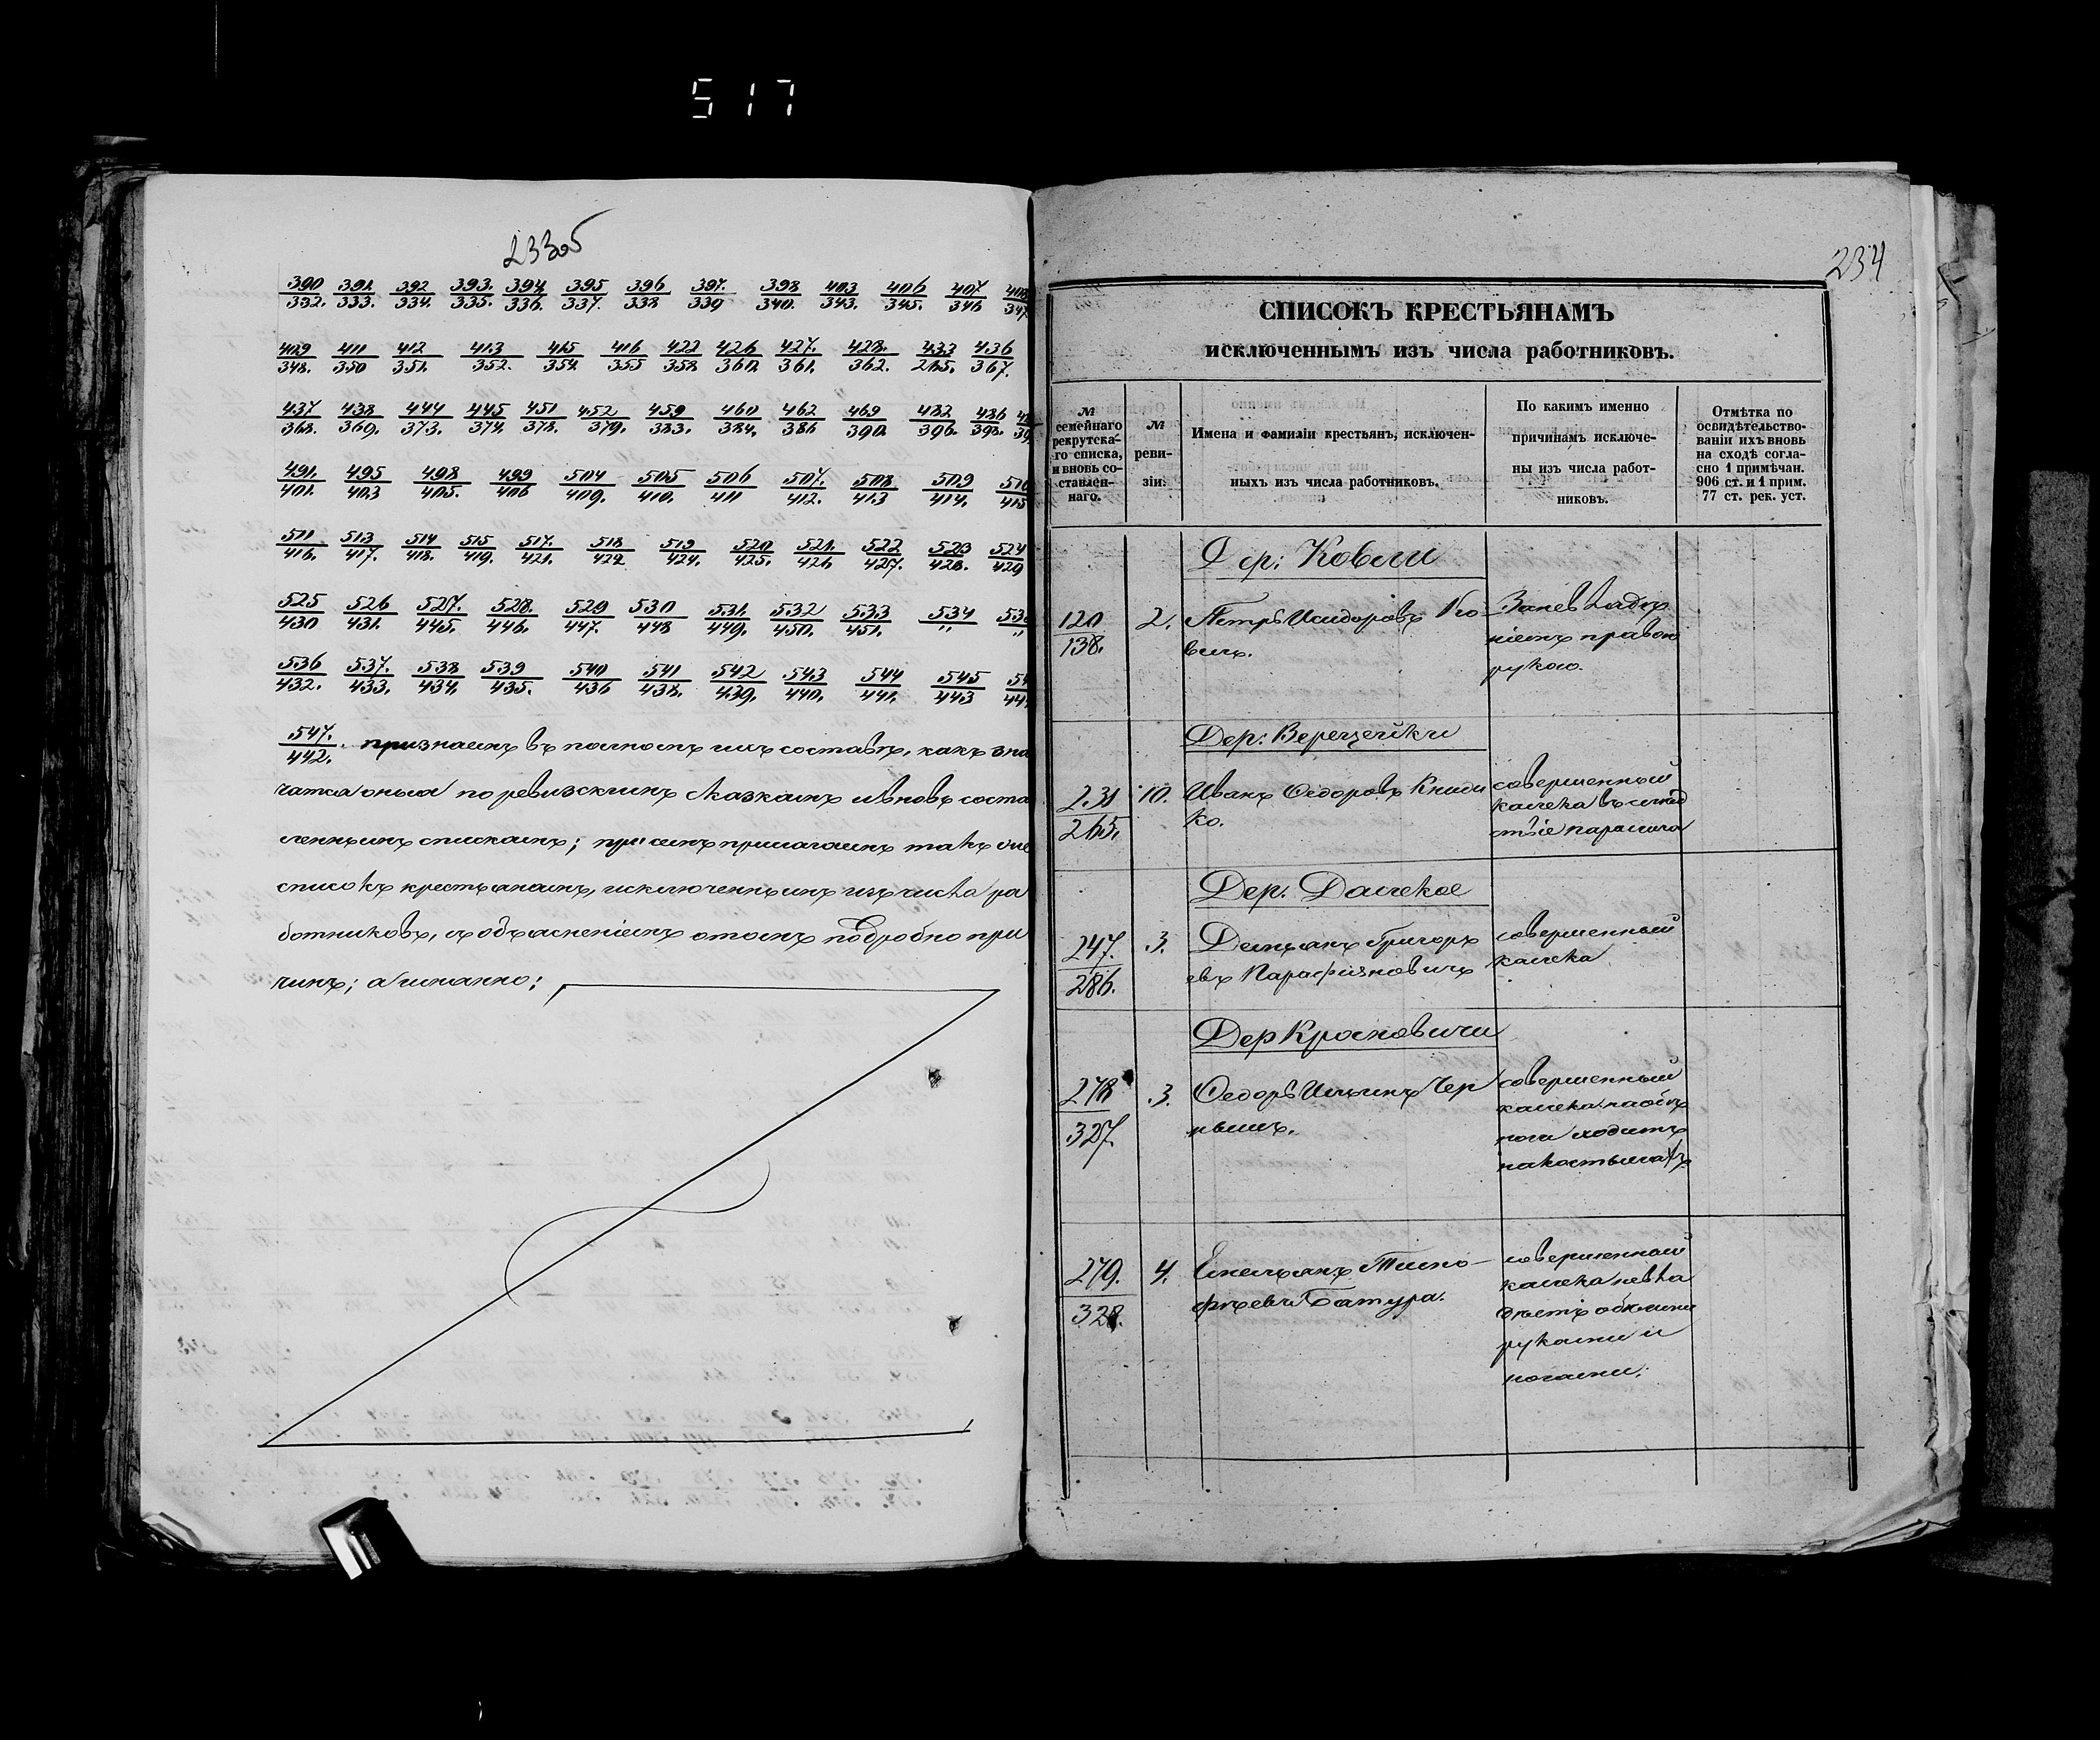 517
233об
390/332. 391./333. 392/334. 393./335. 394/336. 395/337. 396/338 397./339 398/340. 403/343. 406/345. 407/346 408/347
409/348. 411/350 412/351. 413/352. 415/354. 416/355 422/358. 426/360. 427./361. 428./362. 433/265. 436/367.
437/368. 438/369. 444/373. 445/374. 451/378. 452/379. 459/383. 460/384. 462/386 469/390. 482/396. 486/398.
491./401. 495/403 498/405. 499/406 504/409. 505/410. 506/411 507./412. 508./413 509/414. 510/415
511/416. 513/417. 514/418. 515/419. 517./421. 518/422. 519/424. 520/425. 521./426 522/427. 523/428. 524/429
525/430 526/431. 527./445. 528./446. 529/447. 530/448 531./449. 532/450. 533/451. 534/"
536/432. 537./433. 538/434. 539/435. 540/436 541/438. 542/439. 543/440. 544/441. 545/443
547./442. признаемъ въ полномъ ихъ составѣ, какъ зна
чатся оныя по ревизскимъ сказкамъ и вновь соста
леннымъ спискамъ; при семъ прилагаемъ такъ
списокъ крестьянамъ, исключеннымъ изъ числа ра
ботниковъ, съ объясненіемъ о томъ подробно при
чинъ; а именно:
234
СПИСОКЪ КРЕСТЬЯНАМЪ
исключеннымъ изъ числа работниковъ.
№ семейнаго рекрутска-го списка, и вновь со-ставлен-наго.
№ реви-зіи.
Имена и фамиліи крестьянъ, исключен-ныхъ изъ числа работниковъ.
По какимъ именно причинамъ исключе-ны изъ числа работ-никовъ.
Отмѣтка по освидѣтельство-ваніи ихъ вновь на сходѣ согла-сно 1 примѣчан. 906 ст. и 1 прим. 77 ст. рек. уст.
Дер: Ковали
120/138. 2. Петръ Исидоровъ Ко
ніемъ правою
рукою.
Дер: Верещейки
231/265. 10. Иванъ Ѳедоровъ совершенный
ко. калека въ слѣд
ствіе паралича
Дер. Далекое
247./286. 3. Демьянъ Григорь совершенный
евъ Парафіяновичъ калека
Дер Кроеновичи
278/327. 3. Ѳедоръ Ильинъ Чер совершенный
нышъ. калека на обѣ
ноги ходитъ
на костыляхъ
279./328. 4. Емельянъ Тимо- совершенный
фѣевъ Батура. калека не вла
дѣетъ обѣими
руками и
ногами.